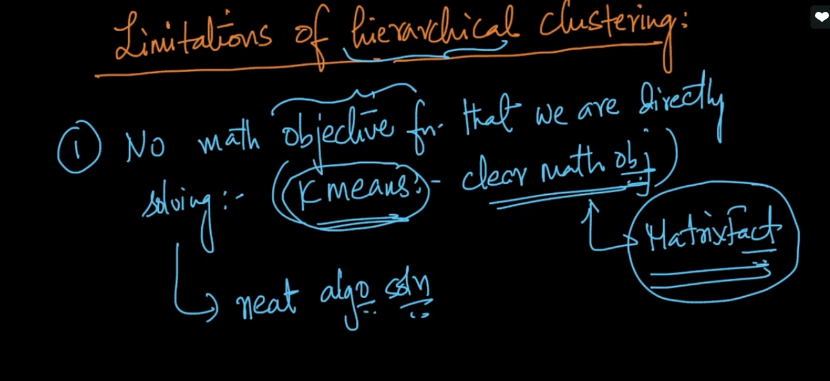 Limitations of hierarchical clustering:
① No math objective fn. that we are directly
solving:- (Kmeans:- clear math obj)
Matrix Fact.
neat algo soln